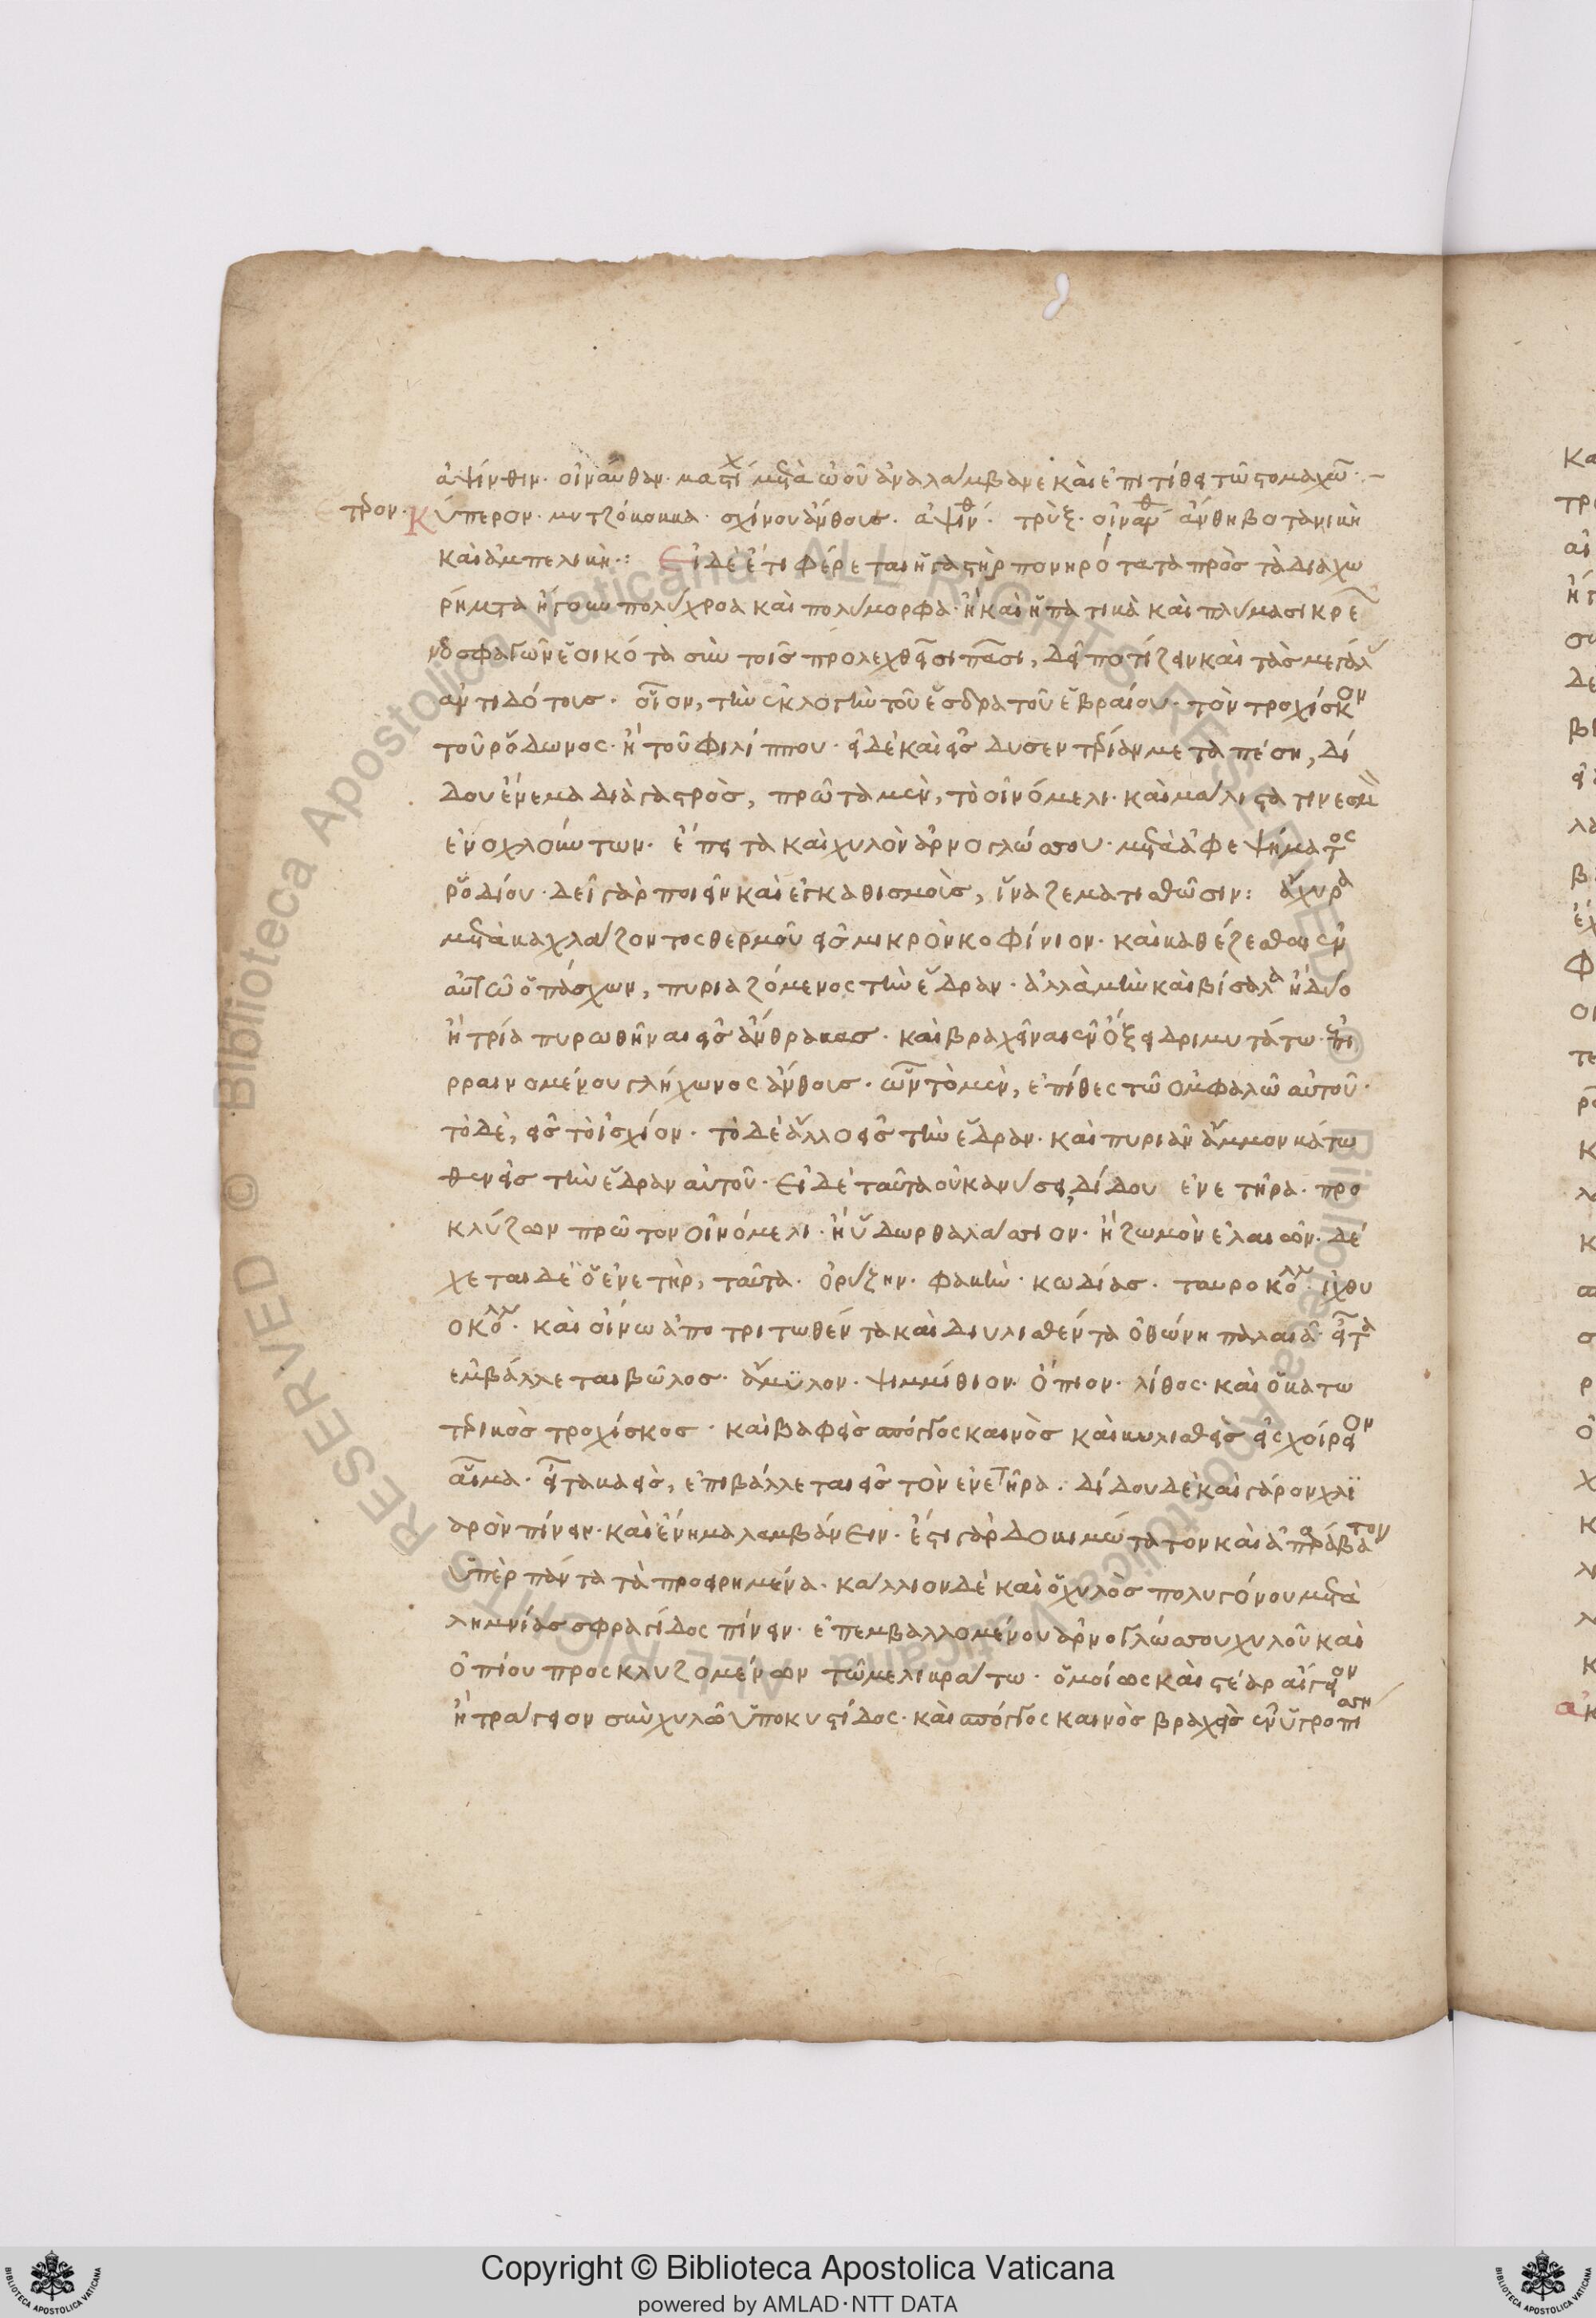 ἀψίνθιν· οἰνάνθαν· μαστί^χ μετὰ ὠοῦ ἀναλάμβανε καὶ ἐπιτίθει τῶ στομάχω·
τρον· Κύπερον· μυντζόκοκκα· σχίνου ἄνθους· ἀψιν^θ· τρὺξ· οἰναν^θ ἄνθη βοτανικὴ
καὶ ἀμπελικὴ·: Εἰ δὲ ἔτι φέρεται ἡ γαστὴρ πονηρότατα πρὸς τὰ διαχω
ρήματα ἤγουν πολύχροα καὶ πολύμορφα· ἢ καὶ ἡπατικὰ καὶ πλύμασι κρε
σφαγῶν ἐοικότα σὺν τοῖς προλεχθεῖσι πᾶσι, δεῖ ποτίζειν καὶ τὰς μεγάλ
ἀντιδότους· οἷον, τὴν ἐκλογὴν τοῦ ἔσδρα τοῦ ἑβραίου· τὸν τροχίσκον
τοῦ ῥόδωνος· ἢ τοῦ φιλίππου· εἰ δὲ καὶ εἰς δυσεντερίαν μεταπέση, δί
δου ἔνεμα διὰ γαστρὸς, πρῶτα μὲν, τὸ οἰνόμελι· καὶ μάλιστα τινεσμ
ἐνοχλούντων· ἔπειτα καὶ χυλὸν ἀρνογλώσσου· μετὰ ἀφεψήματος
ῥοδίου· δεῖ γὰρ ποιεῖν καὶ ἐγκαθισμοὺς, ἵνα ζεματισθῶσιν: ἄχυρα
μετὰ καχλάζοντος θερμοῦ εἰς μικρὸν κοφίνιον· καὶ καθέζεσθαι ἐν
αὐτῶ ὁ πάσχων, πυριαζόμενος τὴν ἕδραν· ἀλλὰ μὴν καὶ βίσαλα ἢ δύο
ἢ τρία πυρωθῆναι εἰς ἄνθρακας· καὶ βραχεῖναι ἐν ὄξει δριμυτάτω· ἐπι
ρραινομένου γλήχωνος ἄνθους· ὧν τὸ μὲν, ἐπίθες τῶ ὀμφαλῶ αὐτοῦ·
τὸ δὲ, εἰς τὸ ἰσχίον· τὸ δὲ ἄλλο εἰς τὴν ἕδραν· καὶ πυριᾶν ἄμμον κάτω
θεν εἰς τὴν ἕδραν αὐτοῦ· Εἰ δὲ ταῦτα οὐκ ἀνύσει, δίδου ἐνετῆρα· προ
κλύζων πρῶτον οἰνόμελι· ἢ ὕδωρ θαλάσσιον· ἢ ζωμὸν ἐλαιῶν· δέ
χεται δὲ ὁ ἐνετὴρ, ταῦτα· ὀρύζην· φακὴν· κωδίας· ταυροκό^λλ· ἰχθυ
οκό^λλ· καὶ οἴνω ἀποτριτωθέντα καὶ διυλισθέντα ὀθώνη παλαιᾶ· εἶτα
ἐμβάλλεται βῶλος· ἄμϋλον· ψιμμίθιον· ὄπιον· λίθος· καὶ ὁ κατω
τερικὸς τροχίσκος· καὶ βαφεὶς σπόγγος καινὸς καὶ κυλισθεὶς εἰς χοίρειον
αἷμα· εἶτα καεὶς, ἐπιβάλλεται εἰς τὸν ἐνετῆρα· δίδου δὲ καὶ γάρον χλϊ
αρὸν πίνειν· καὶ ἔνημα λαμβάνειν· ἔστι γὰρ δοκιμώτατον καὶ ἀπαράβατον
ὑπὲρ πάντα τὰ προειρημένα· κάλλιον δὲ καὶ ὁ χυλὸς πολυγόνου μετὰ
λημνίας σφραγίδος πίνειν· ἐπεμβαλλομένου ἀρνογλώσσου χυλοῦ καὶ
ὀπίου προσκλυζομένων τῶ μελικράτω· ὁμοίως καὶ στέαρ αἴγειον
ἢ τράγειον σὺν χυλῶ ὑποκυστίδος· καὶ σπόγγος καινὸς βραχεὶς ἐν ὑγροπίσση
Copyright © Biblioteca Apostolica Vaticana
powered by AMLAD·NTT DATA